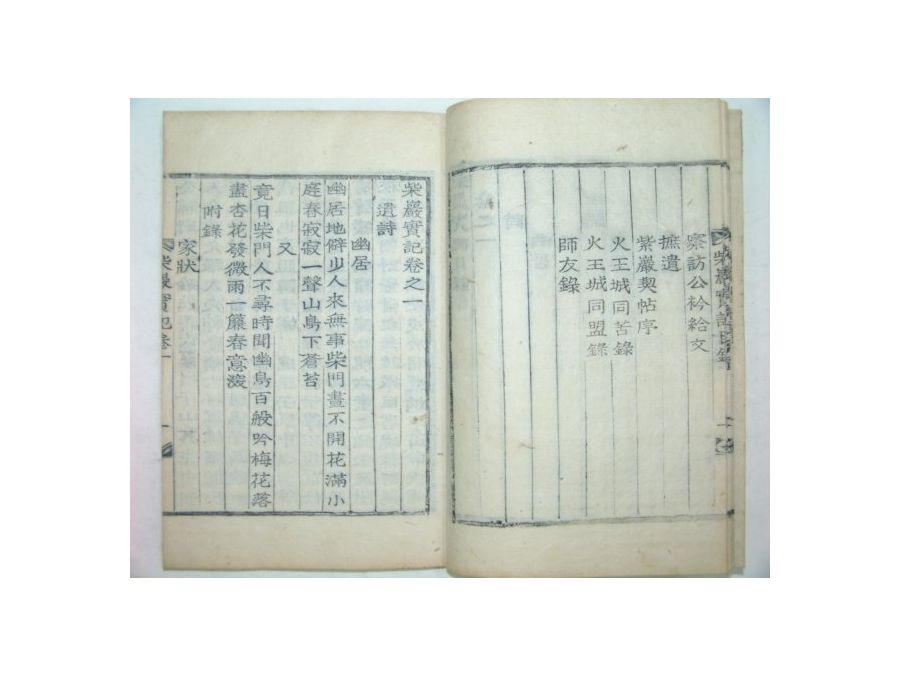 察訪公衿給文
摭遺
紫巖契帖序
火王城同苦錄
火王城同盟錄
師友錄
柴巖實記卷之一
遺詩
幽居
幽居地僻少人來無事柴門晝不開花滿小
庭春寂寂一聲山鳥下蒼苔
又
竟日柴門人不尋時聞幽鳥百般吟梅花落
盡杏花發微雨一簾春意深
附錄
家狀
柴巖實記卷一